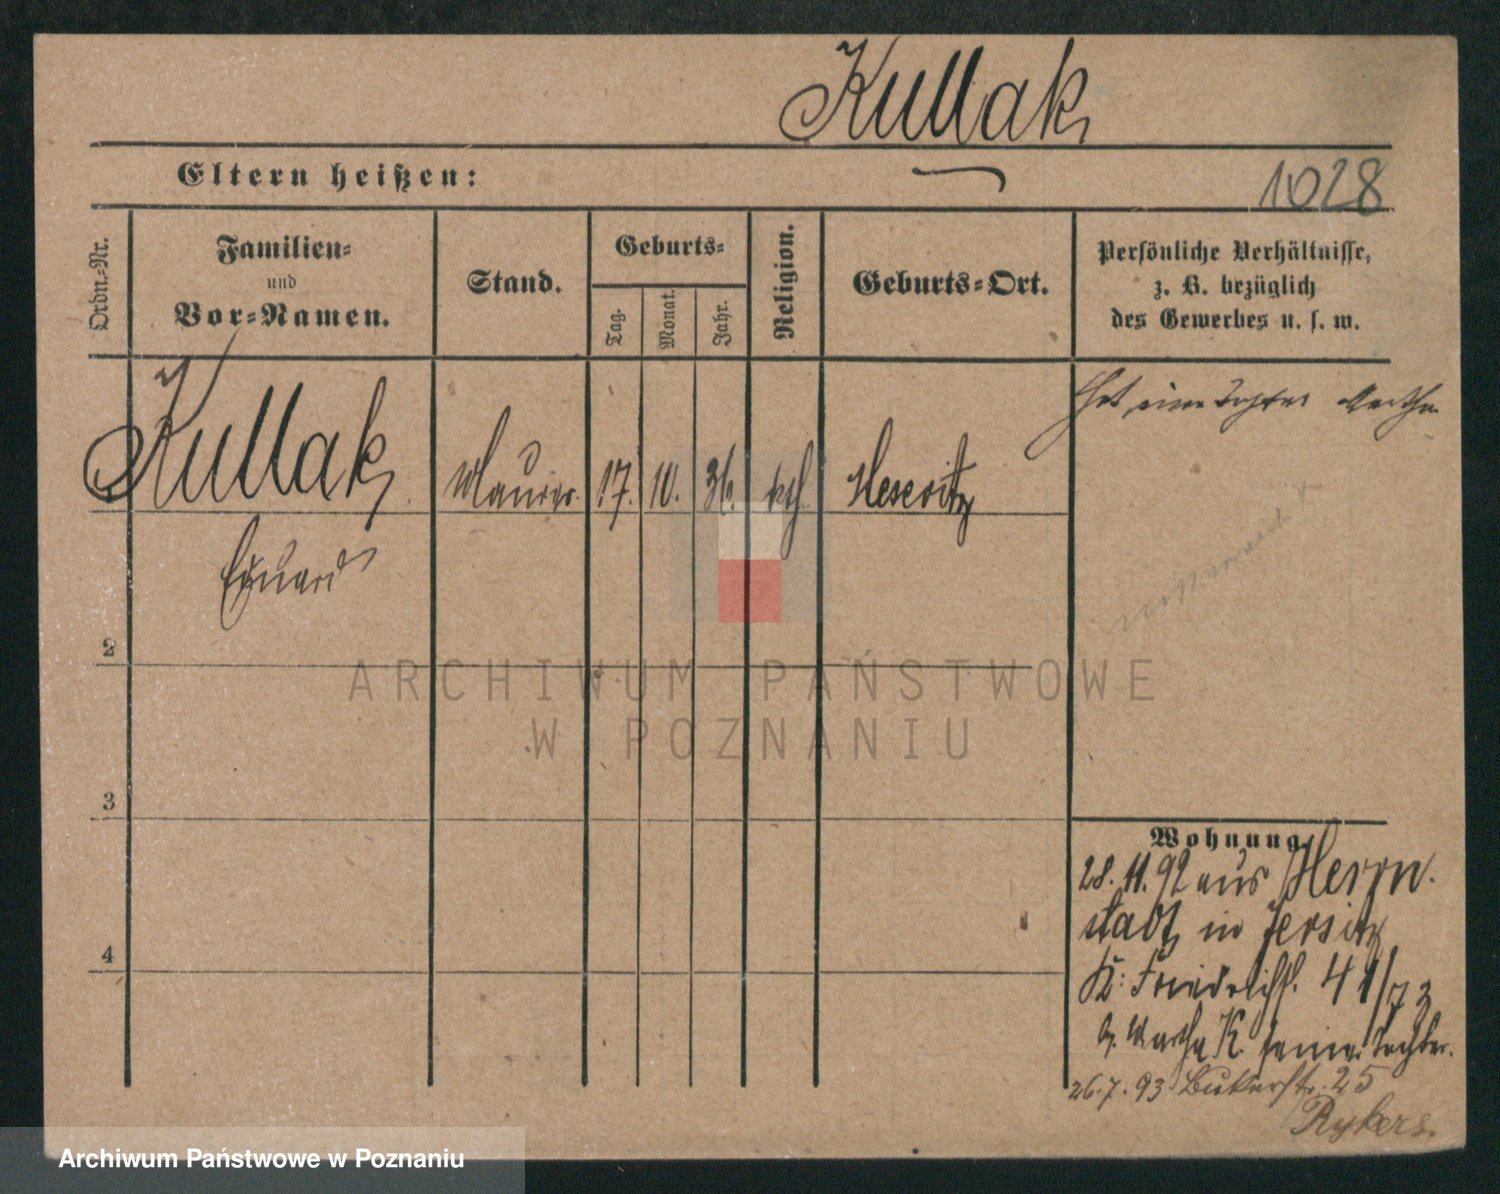 Kullak
Eltern heißen:
1028
Ordn.-Nr.
Familien-
und
Vor-Namen.
Stand.
Geburts-
Tag.
Monat.
Jahr.
Religion.
Geburts-Ort.
Persönliche Verhältnisse,
z. B. bezüglich
des Gewerbes u. s. w.
Kullak Maurer 17. 10. 36. kth Meseritz
Eduard
hat eine Tochter Martha
2
3
4
ARCHIWUM PAŃSTWOWE
W POZNANIU
Wohnung
28. 11. 92 aus Herrn-
stadt in Jersitz
K. Friedrichstr. 41/73
b. Martha K. seiner Tochter.
26.7.93 Bukerstr. 25
Rykers.
Archiwum Państwowe w Poznaniu